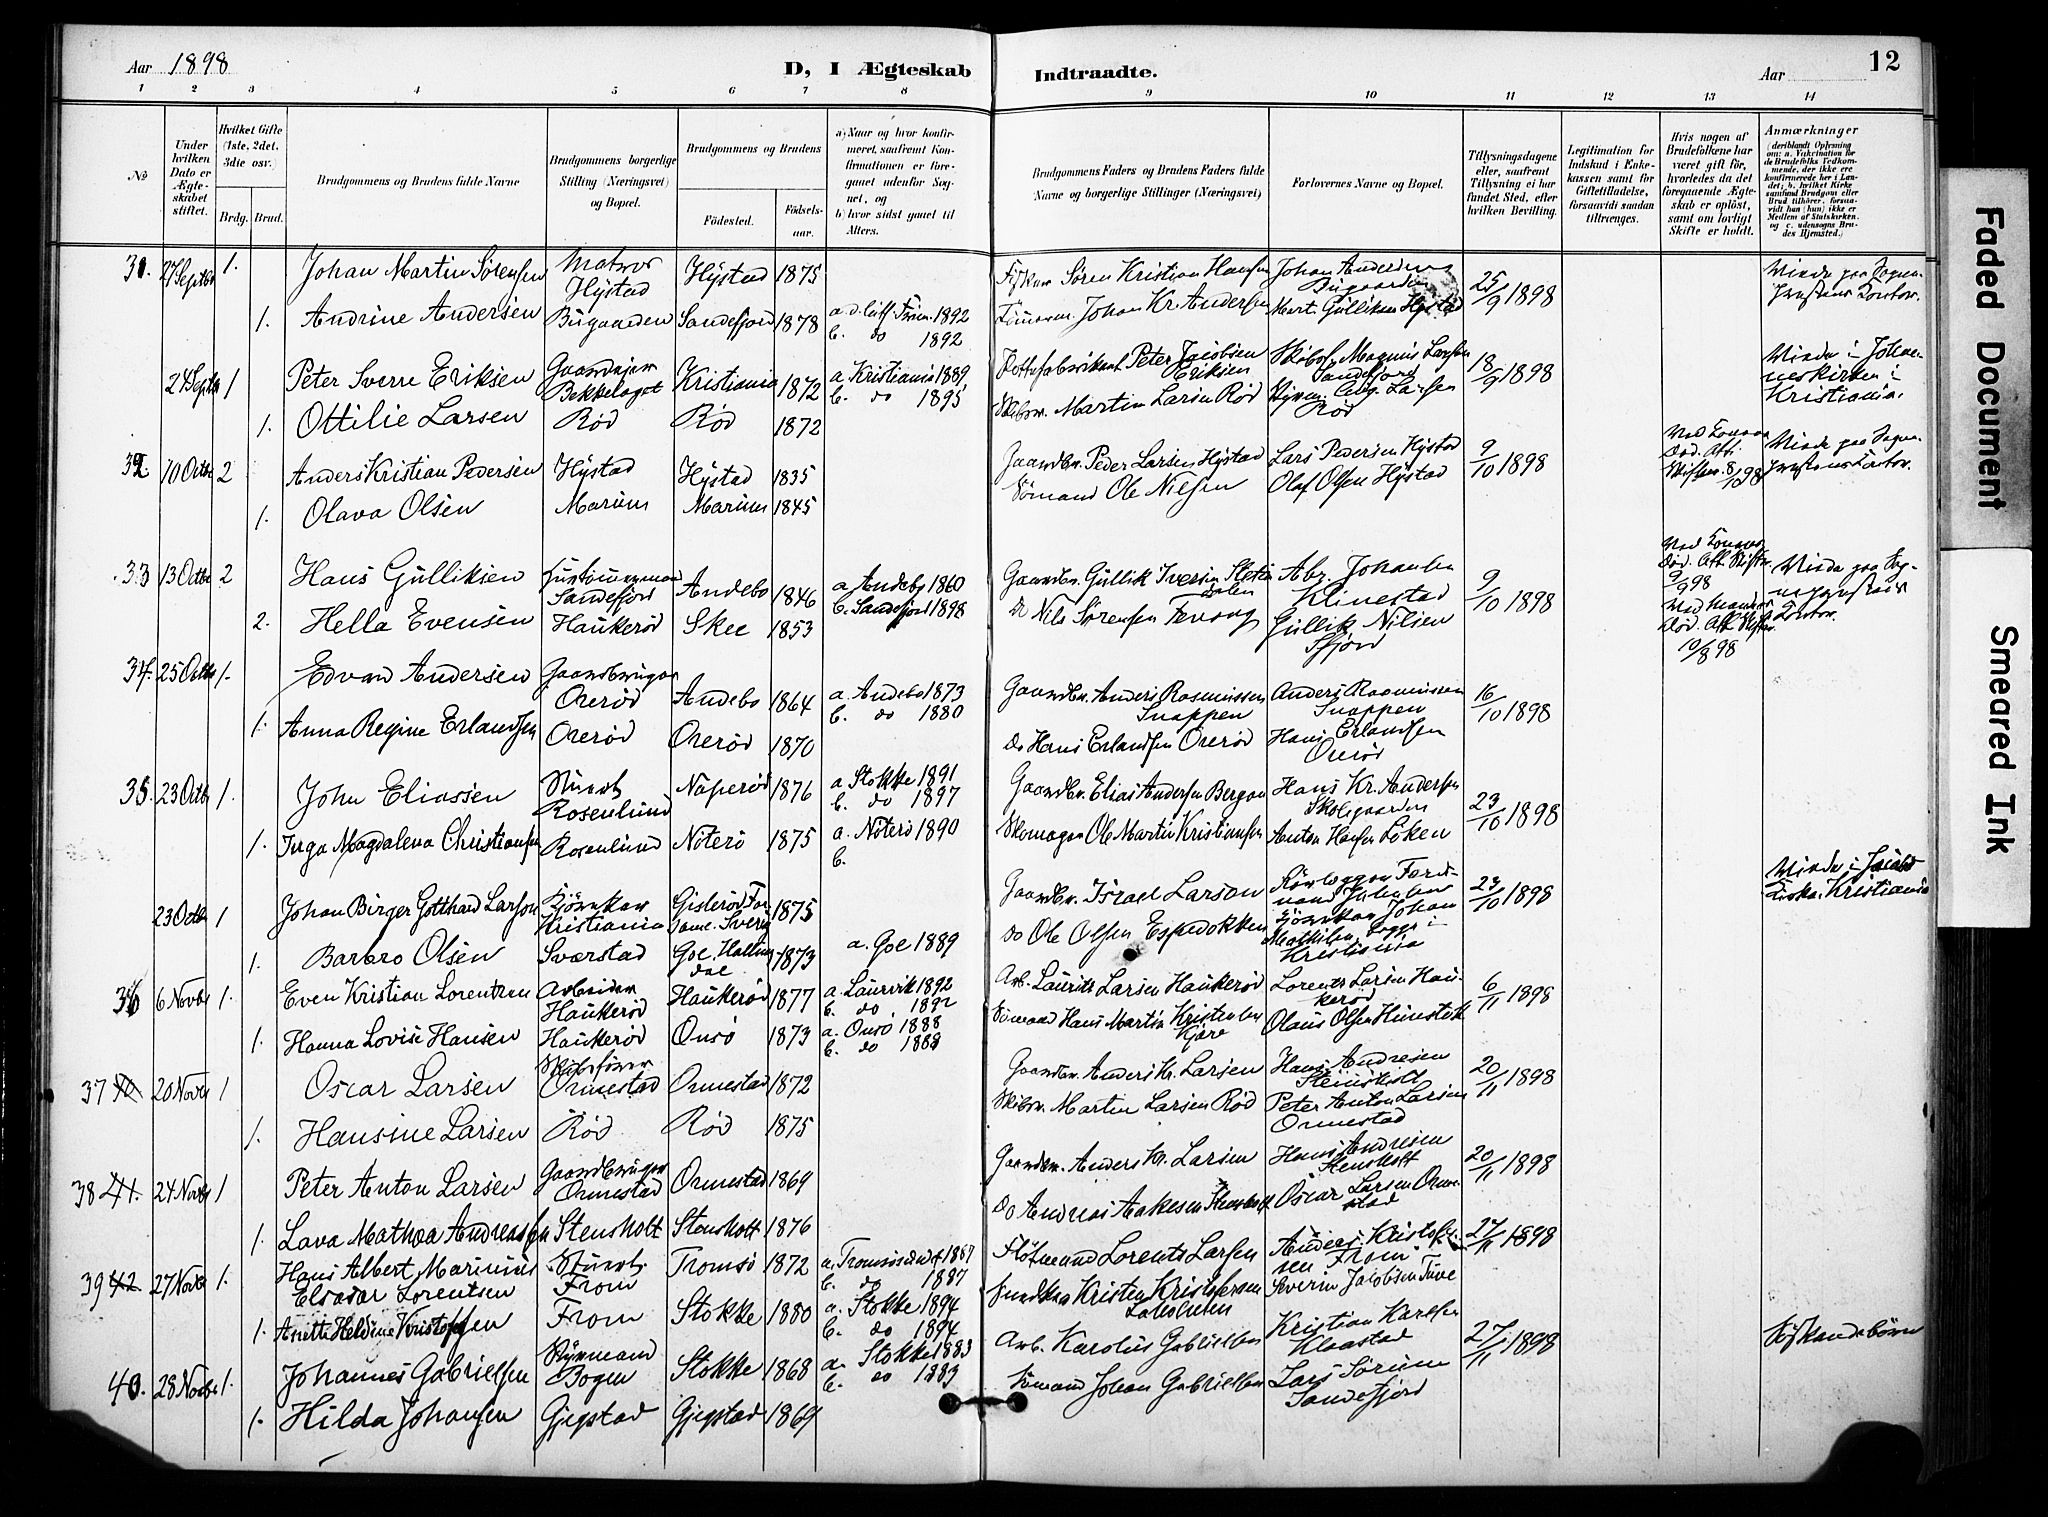 Aar 1898
D, I Ægteskab Indtraadte.
Aar
12
1 2 3 4 5 6 7 8 9 10 11 12 13 14
№
Under hvilken Dato er Ægteskabet stiftet.
Hvilket Gifte (1ste, 2det, 3die osv.)
Brdg. Brud.
Brudgommens og Brudens fulde Navne
Brudgommens borgerlige Stilling (Næringsvei) og Bopæl.
Brudgommens og Brudens
Födested. Födselsaar.
a) Naar og hvor konfirmeret, saafremt Konfirmationen er foregaaet udenfor Sognet, og
b) hvor sidst gaaet til Alters.
Brudgommens Faders og Brudens Faders fulde Navne og borgerlige Stillinger (Næringsvei)
Forlovernes Navne og Bopæl.
Tillysningsdagene eller, saafremt Tillysning ei har fundet Sted, efter hvilken Bevilling.
Legitimation for Indskud i Enkekassen samt for Giftetilladelse, forsaavidt saadan tiltrænges.
Hvis nogen af Brudefolkene har været gift før, hvorledes da det foregaaende Ægteskab er oplöst, samt om lovligt Skifte er holdt.
Anmærkninger (deriblandt Oplysning om: a. Vakcination for de Brudefolks Vedkommende, der ikke ere konfirmerede her i Landet; b. hvilket Kirkesamfund Brudgom eller Brud tilhörer, forsaavidt han (hun) ikke er Medlem af Statskirken, og c. udensogns Brudes Hjemsted.)
31. 27 Septbr 1. Johan Martin Sørensen Matros Hystad Hystad 1875 Søren Kristian Hansen Johan Andersen Bugaarden 25/9 1898 Viede paa Sogneprestens Kontor.
1. Andrine Andersen Bugaarden Sandefjord 1878 1892 b. do 1892 Johan Kr. Andersen Mart. Gulliksen Hystad
24 Septbr 1 Peter Sverre Eriksen Gaardejer Bekkelaget Kristiania 1872 a Kristiania 1889 b. do 1895 Peter Jacobsen Eriksen Magnus Larsen Sandefjord 18/9 1898 Viede i Johanneskirken i Kristiania.
1. Ottilie Larsen Rød Rød 1872 Skibsr. Martin Larsen Rød Larsen Rød
32. 10 Octbr 2 Anders Kristian Pedersen Hystad Hystad 1835 Gaardbr. Peder Larsen Hystad Lars Pedersen Hystad 9/10 1898 Ved Konens Død. Att. Viede paa Sogneprestens Kontor.
1. Olava Olsen Marum Marum 1845 Sømand Ole Nilsen Olaf Olsen Hystad
33 13 Octbr 2 Hans Gulliksen Sandefjord Andebo 1846 a. Andeby 1860 b. Sandefjord 1898 Gaardbr. Gullik Iversen Abr. Johansen Klinestad 9/10 1898 Ved Konens Død. 9/9 98 Viede paa Sogneprestens Kontor.
2. Hella Evensen Haukerød Skee 1853 Do Nils Sørensen Gullik Nilsen 10/8 98
34. 25 Octbr 1. Edvard Andersen Gaardbruger Orerød Andebo 1864 a. Andebo 1873 b. do 1880 Gaardbr. Anders Rasmussen Snappen Anders Rasmussen Snappen 16/10 1898
1. Anna Regine Erlandsen Orerød Orerød 1870 Do Hans Erlandsen Orerød Hans Erlandsen Orerød
35. 23 Octbr 1. John Eliassen Rosenlund Naperød 1876 a. Stokke 1891 b. do 1897 Gaardbr. Elias Andersen Bergan Hans Kr. Andersen 23/10 1898
1. Inga Magdalena Christiansen Rosenlund Nøterø 1875 a. Nøterø 1890 b. Skomager Ole Martin Kristiansen Anton Hansen Løken
23 Octbr 1 Johan Birger Gotthard Larson Kristiania 1875 Gaardbr. Israel Larson 23/10 1898 Kristiania
1. Barbro Olsen Sværstad Goe. 1873 a. Goe 1889 Do Ole Olsen Kristiania
36 6 Novbr 1. Even Kristian Lorentzen Arbeider Haukerød Haukerød 1877 a. Laurvik 1892 b. do 1892 Arb. Laurits Larsen Haukerød Lorents Larsen Haukerød 6/11 1898
1. Hanna Lovise Hansen Haukerød Onsø 1873 a. Onsø 1888 b. do 1888 Sømand Hans Martin Kristensen Olaus Olsen
37 20 Novbr 1 Oscar Larsen Skibsfører Ormestad Ormestad 1872 Gaardbr. Anders Kr. Larsen Hans Andresen Stensholt 20/11 1898
1. Hansine Larsen Rød Rød 1875 Skibsr. Martin Larsen Rød Peter Anton Larsen Ormestad
38 41. 24 Novbr 1 Peter Anton Larsen Gaardbruger Ormestad Ormestad 1869 Gaardbr. Anders Kr. Larsen Hans Andresen Stensholt 20/11 1898
1. Lava Mathea Andreassen Stensholt Stensholt 1876 Do Andreas Oscar Larsen Ormestad
39 42 27 Novbr 1. Hans Albert Marinius Lorentsen From Tromsø 1872 1887 b. do 1887 Lorents Larsen Anders Kristofersen From 27/11 1898
1. Anette Heldine Kristoffersen From Stokke 1880 a. Stokke 1894 b. do 1894 Kristen Kristofersen Severin Jacobsen
40. 28 Novbr 1. Johannes Gabrielsen Bogen Stokke 1868 a. Stokke 1883 b. do 1883 Arb. Karolius Gabrielsen Kristian Karlsen 27/11 1898 Søskendebørn
1. Hilda Johansen Gjepstad Gjepstad 1869 Sømand Johan Gabrielsen Lars Sørum Sandefjord
Faded Document
Smeared Ink